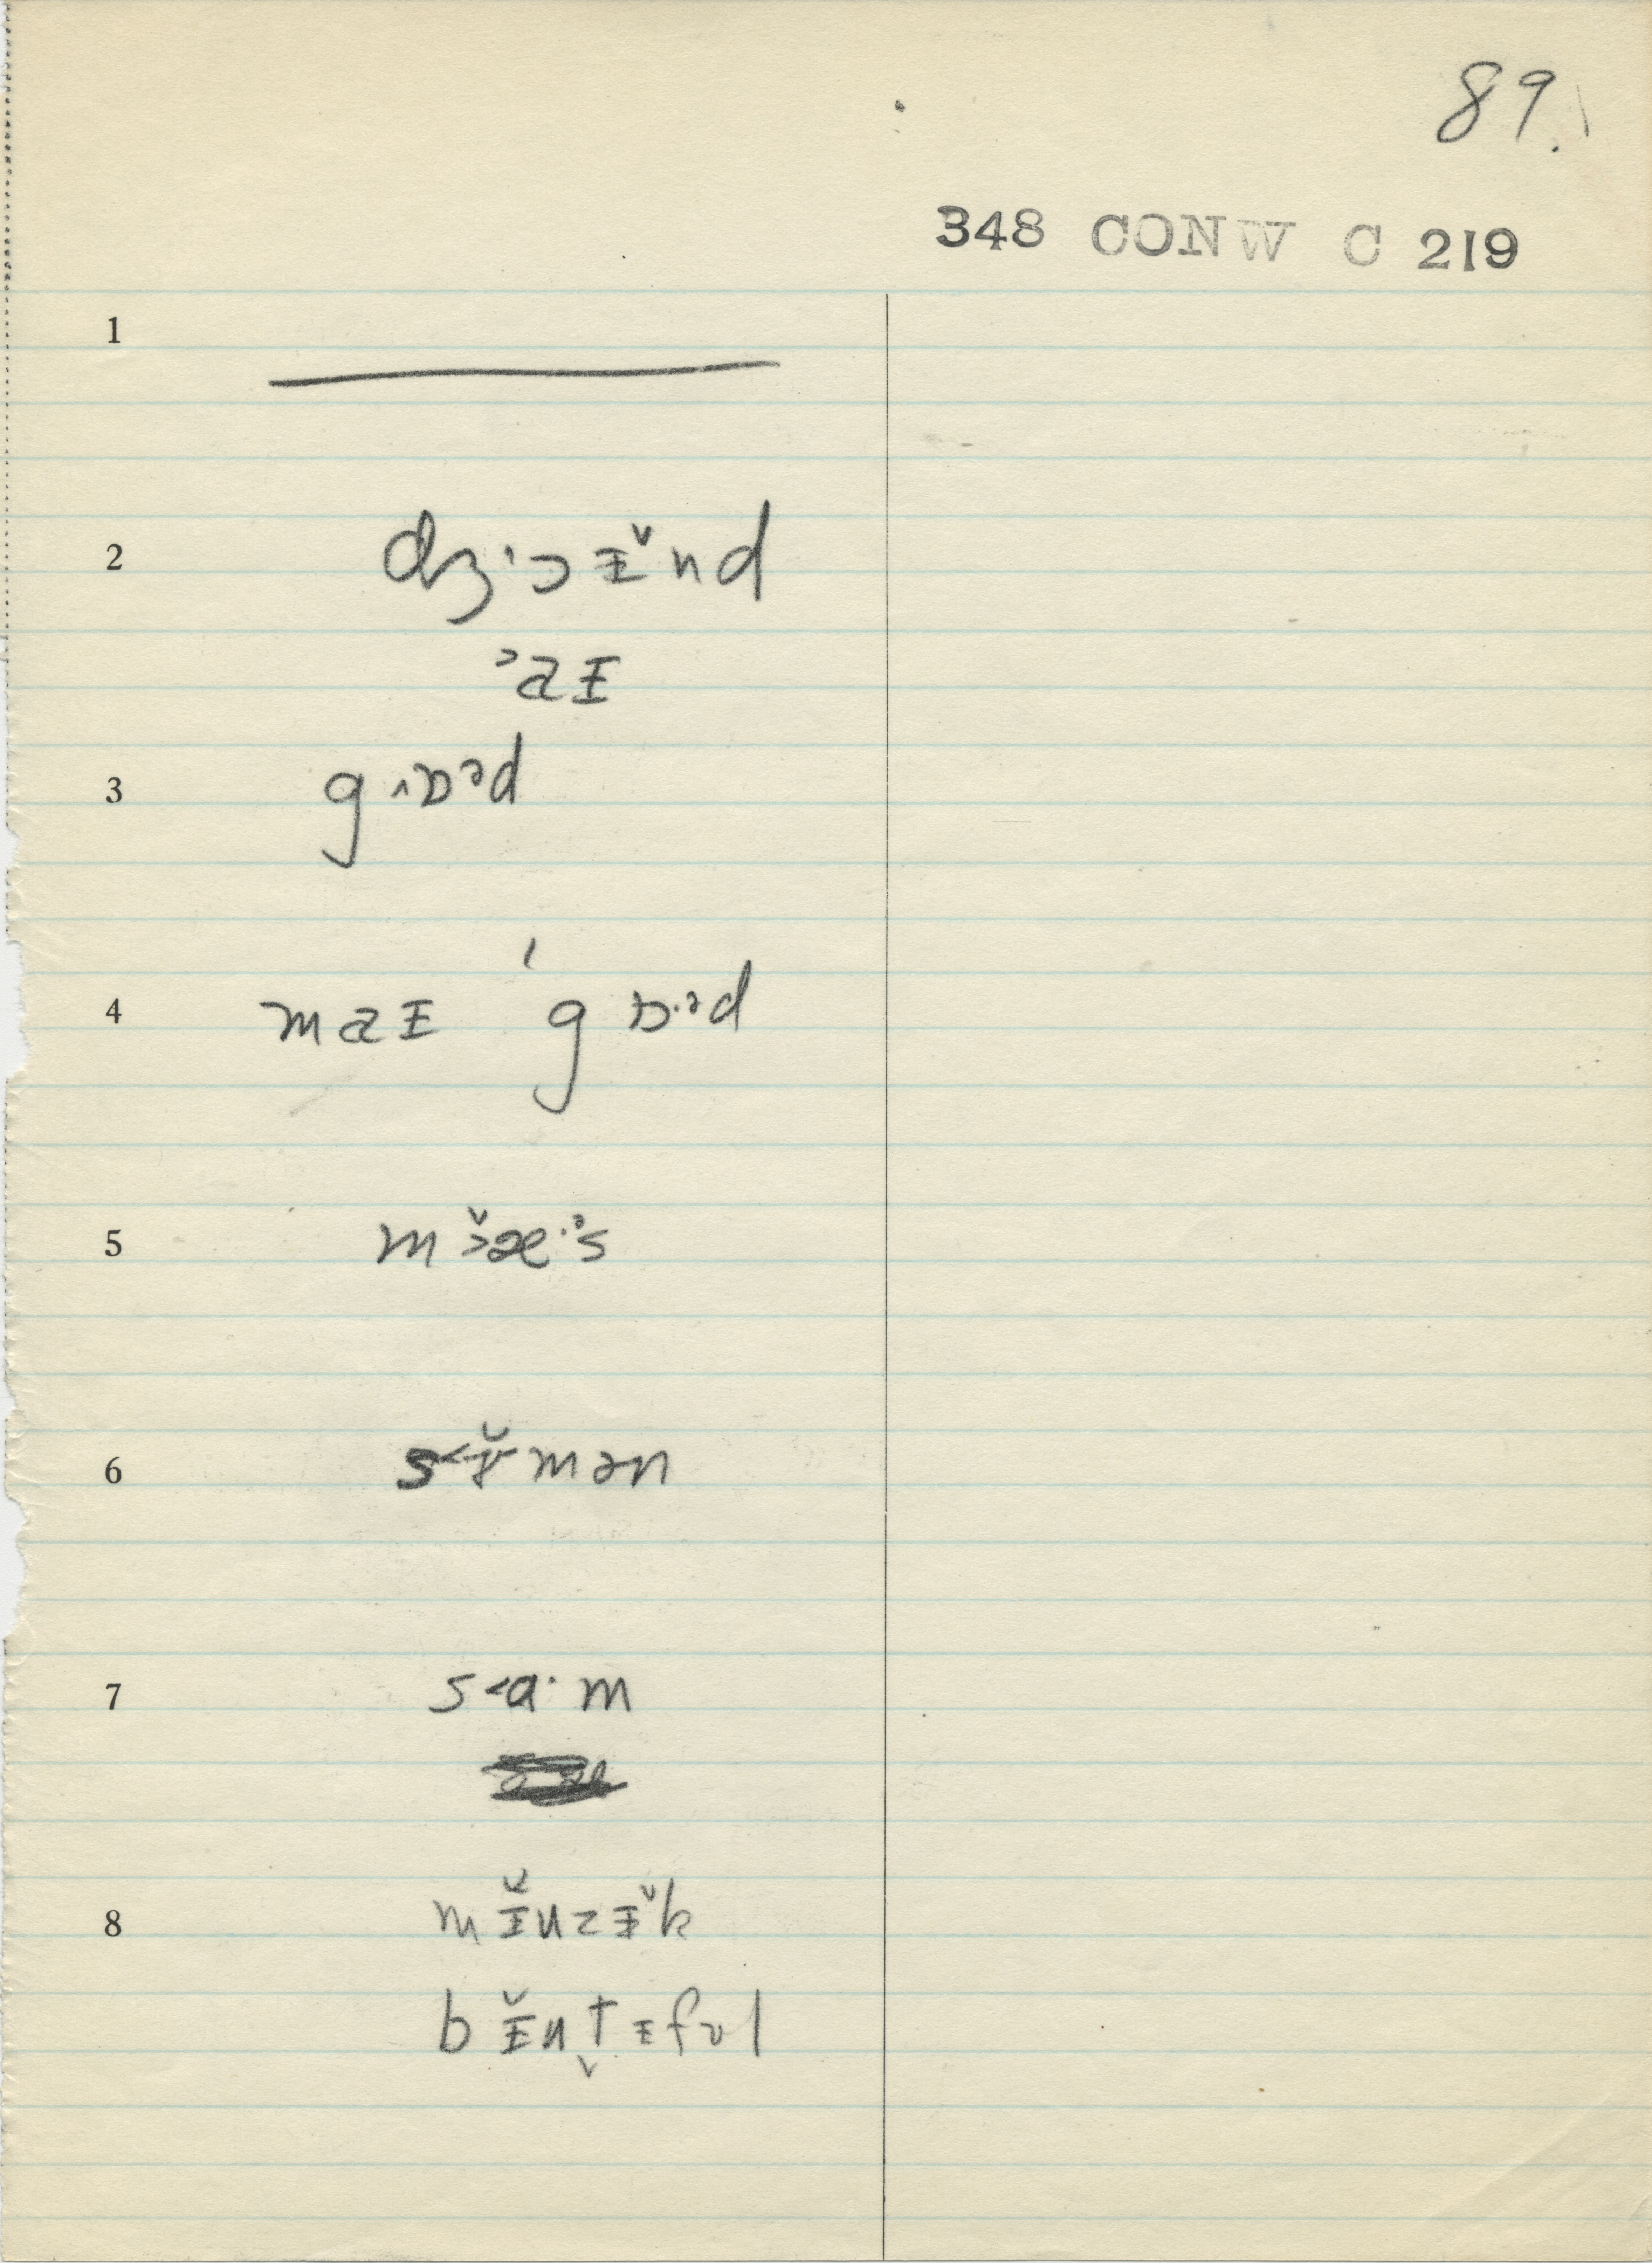 89.
348 CONW C 219
1
2 dʒ·ɔɪ̵̌nd
˃aɪ̵
3 g˄ɒᵊd
4 maɪ̵ ˈgɒ·ᵊd
5 m˃̌æ·ᵊs
6 s˂ɤ̵̌mən
7 s˂ɑ·m
8 mɪ̵̌uzɪ̵̌k
bɪ̵̌ut̬ɪ̵fʊl